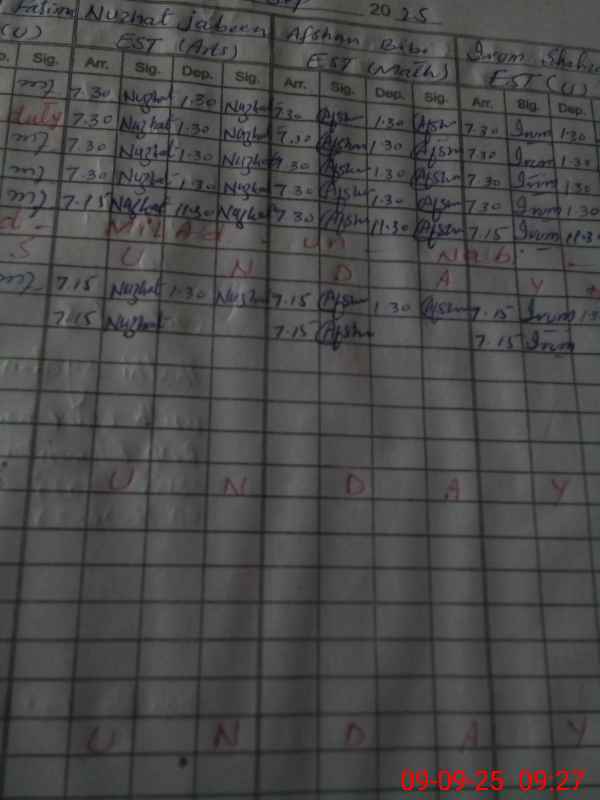 Sep 2025
Nuzhat jabeen Afshan Bibi Irum
(U) EST (Arts) EST (Math) EST (U)
Sig. Arr. Sig. Dep. Sig. Arr. Sig. Dep. Sig. Arr. Sig. Dep.
7.30 Nuzhat 1.30 Nuzhat 7.30 Afshn 1.30 Afshn 7.30 Irum 1.30
duty 7.30 Nuzhat 1.30 Nuzhat 7.30 Afshn 1.30 Afshn 7.30 Irum 1.30
7.30 Nuzhat 1.30 Nuzhat 7.30 Afshn 1.30 Afshn 7.30 Irum 1.30
7.30 Nuzhat 1.30 Nuzhat 7.30 Afshn 1.30 Afshn 7.30 Irum 1.30
7.15 Nuzhat 11.30 Nuzhat 7.30 Afshn 11.30 Afshn 7.15 Irum 11.30
d - Milad - un Nab
S U N D A Y
7.15 Nuzhat 1.30 Nuzhat 7.15 Afshn 1.30 Afshn 7.15 Irum 1.3
7.15 Nuzhat 7.15 Afshn 7.15 Irum
U N D A Y
U N D A Y
09-09-25 09:27